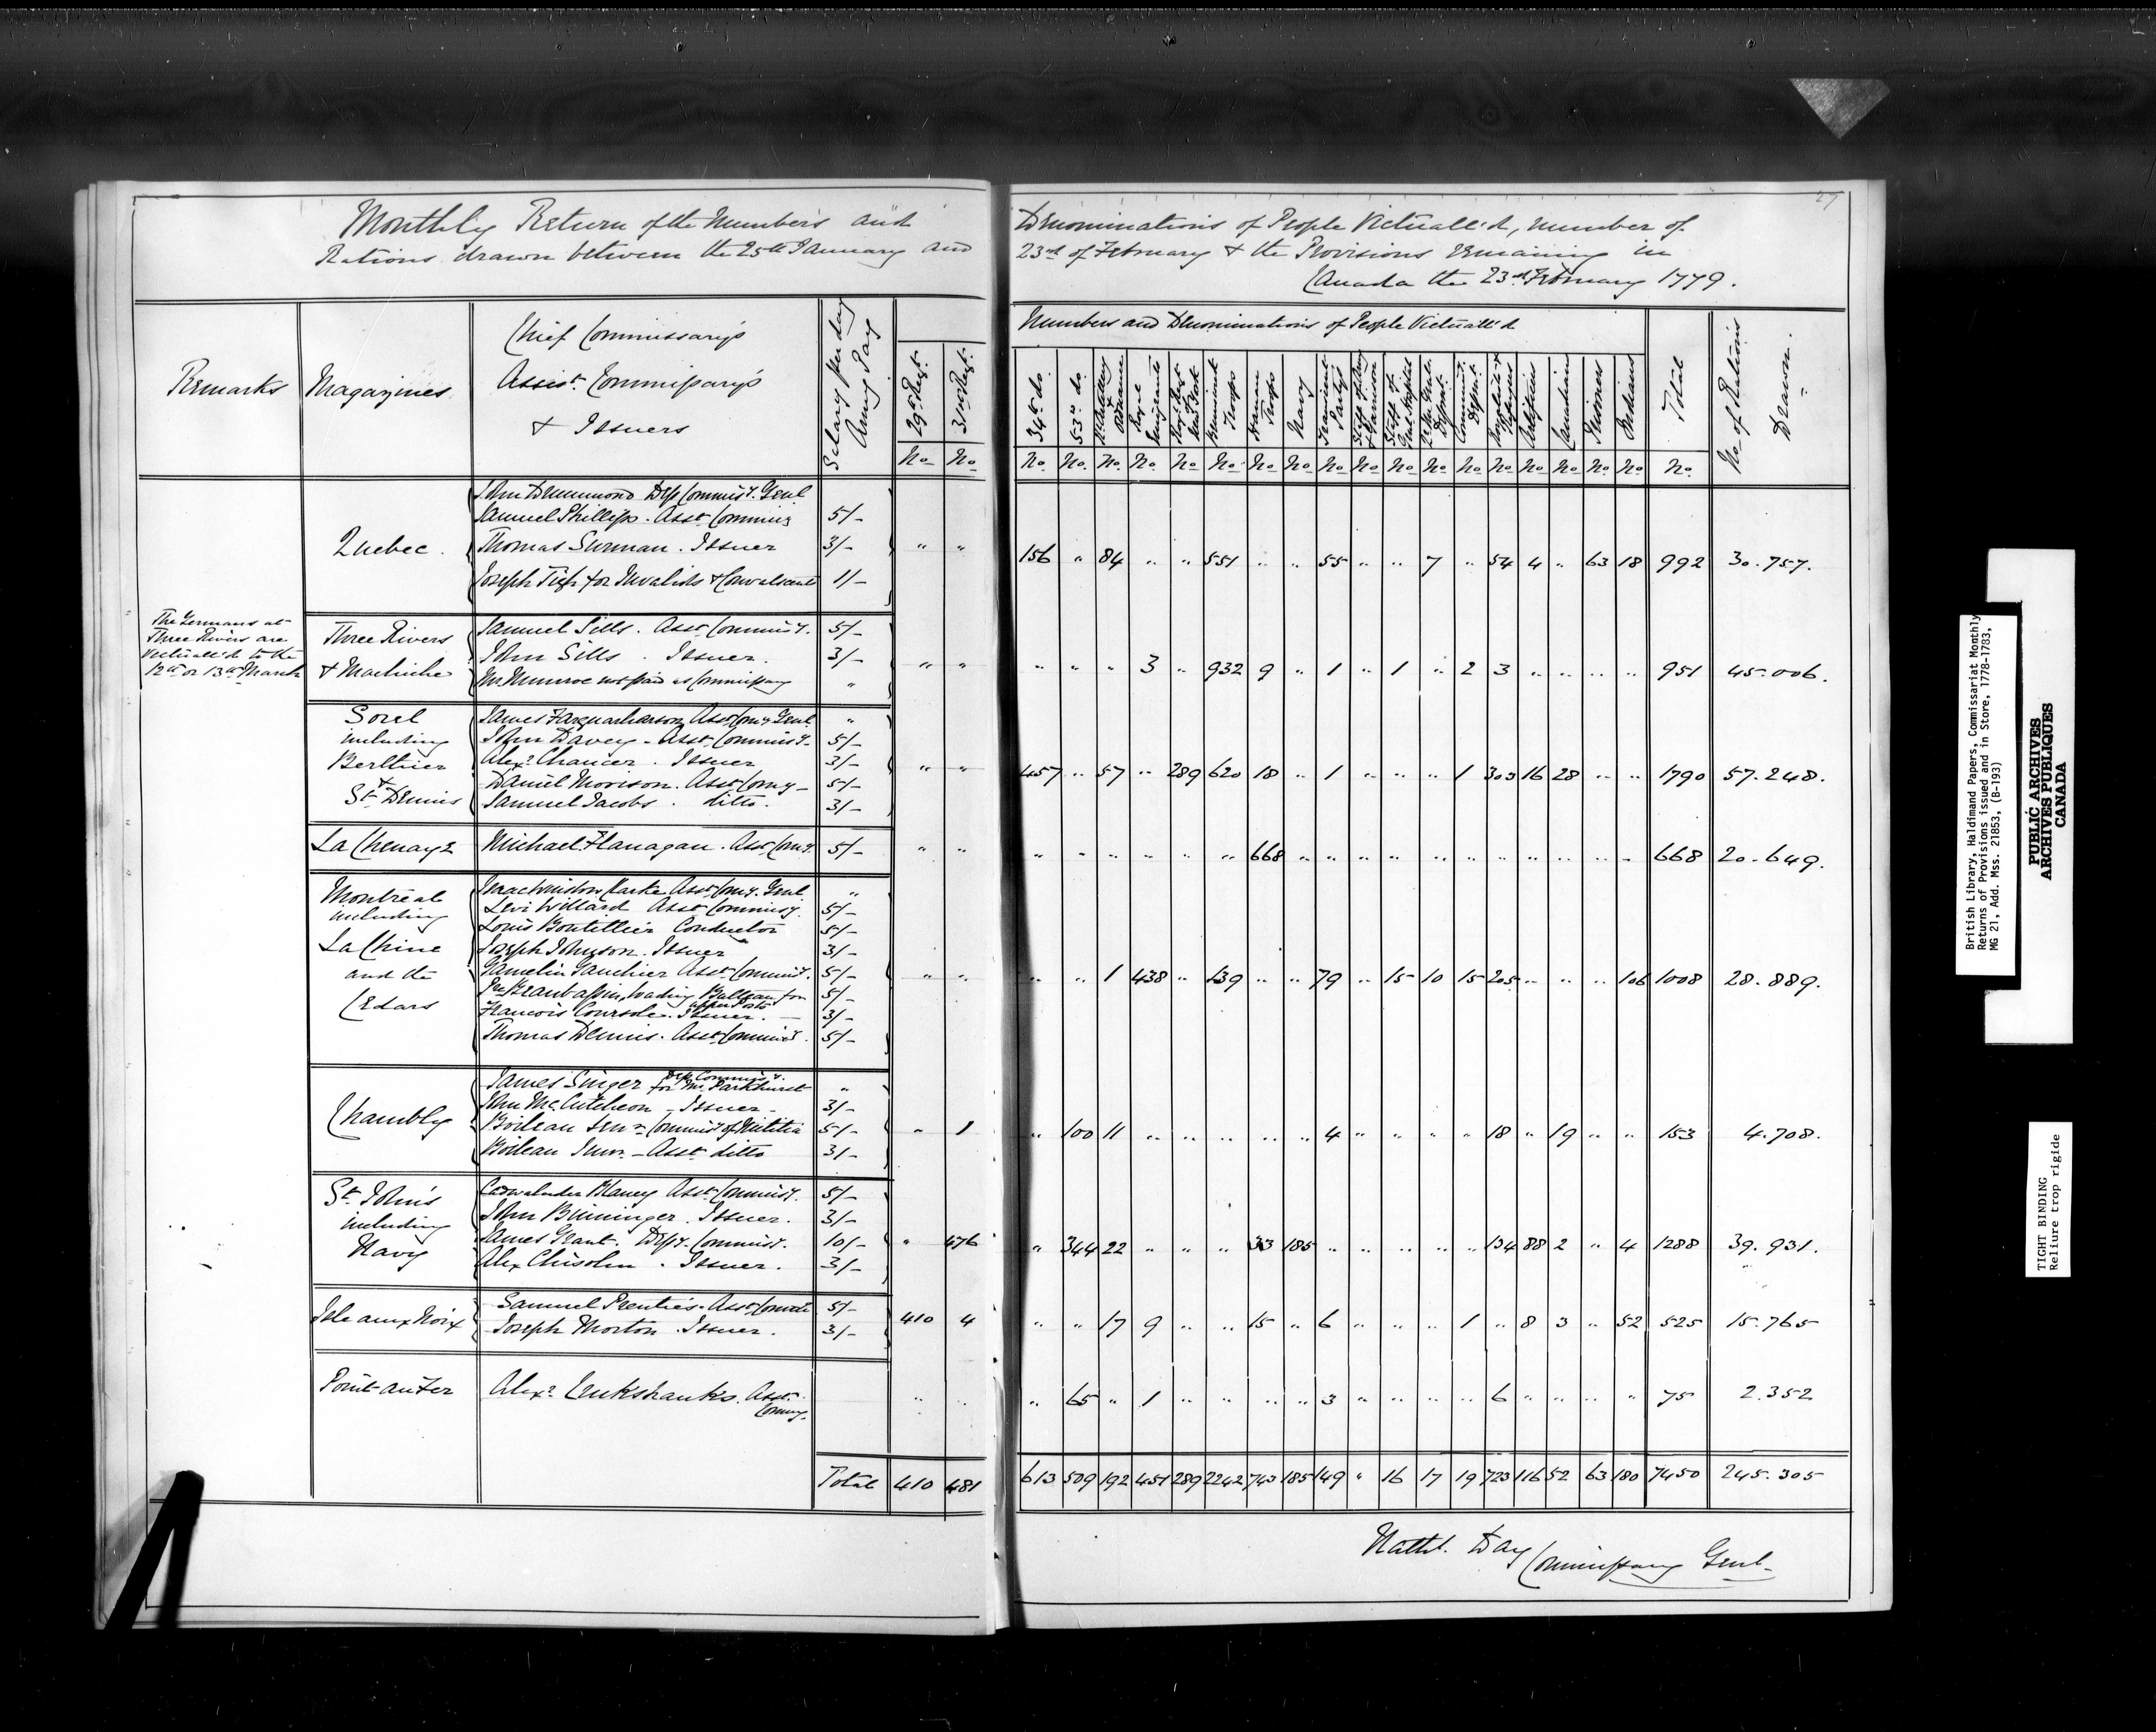 27
Monthly Return of the Numbers and Denominations of People Victuall'd, number of
Rations drawn between the 25th January and 23rd of February & the Provisions remaining in
Canada the 23rd February 1779.
Remarks
Magazines
Chief Commissary's
Assist. Commissary's
& Issuers
Salary per day
Army Pay
Numbers and Denominations of People Victuall'd
29th Regt.
31st Regt.
34th do.
53rd do.
Artillery & Ordnance
Royal Emigrants
Troops
Troops
Navy
Party
Staff of
Genl Hospital
Commiss. Departt.
Artificers
Canadians
Prisoners
Indians
Total
No. of Rations
Drawn.
No. No. No. No. No. No. No. No. No. No. No. No. No. No. No. No. No. No. No. No. No.
Quebec.
John Drummond Dep Commisy. Genl
Samuel Phillips. Asst Commisy 5/-
Thomas Surman. Issuer 3/-
Joseph Tigh for Invalids & Convalescents 1/-
" " 156 " 84 " " 551 " " 55 " " 7 " 54 4 " 63 18 992 30.757.
The Germans at
Three Rivers are
Victuall'd to the
12th or 13th March
Three Rivers
& Machiche
Samuel Sills. Asst Commisy. 5/-
John Sills. Issuer. 3/-
Mr Munroe not paid as Commissary "
" " " " " 3 " 932 9 " 1 " 1 " 2 3 " " " " 951 45.006.
Sorel
including
Berthier
&
St Dennis
James Farquharson Asst Comy Genl. "
John Davey - Asst. Commisy. 5/-
Alexr Chaucer. Issuer 3/-
Daniel Morison. Asst Comy - 5/-
Samuel Jacobs. ditto. 3/-
" " 457 " 57 " 289 620 18 " 1 " " " 1 303 16 28 " " 1790 57.248.
La Chenaye
Michael Flanagan. Asst Comy. 5/-
" " " " " " " " 668 " " " " " " " " " " " 668 20.649.
Montreal
including
La Chine
and the
Cedars
Isaac Winslow Clarke Asst Comy. Genl "
Levi Willard Asst Commisy. 5/-
Louis Boutillier Conductor 5/-
Joseph Johnson. Issuer 3/-
Gamelin Gauchier Asst Commisy. 5/-
loading Batteaux for upper Posts 5/-
Francois Coursole. Issuer. 3/-
Thomas Dennis. Asst Commisy. 5/-
" " " " 1 438 " 139 " " 79 " 15 10 15 205 " " " 106 1008 28.889.
Chambly
James Singer Dep Commisy. for Mr. Parkhurst "
John McCutcheon - Issuer - 3/-
Boileau Senr Commisy of Militia 5/-
Boileau Junr. - Asst ditto 3/-
" 1 " 100 11 " " " " " 4 " " " " 18 " 19 " " 153 4.708.
St. John's
including
Navy
Cadwalader Blaney Asst Commisy. 5/-
John Bininger. Issuer. 3/-
James Grant. Depy. Commisy. 10/-
Alex Chisolm. Issuer. 3/-
" 476 " 344 22 " " " 33 185 " " " " " 134 88 2 " 4 1288 39.931.
Isle aux Noix
Samuel Prentie's. Asst Commisy 5/-
Joseph Morton. Issuer. 3/-
410 4 " " 17 9 " " 15 " 6 " " " 1 " 8 3 " 52 525 15.765
Point au Fer
Alexr Cruikshank's. Asst. Commy.
" " " 65 " 1 " " " " 3 " " " " 6 " " " " 75 2.352
Total 410 481 613 509 192 451 289 2242 743 185 149 " 16 17 19 723 116 52 63 180 7450 245.305
Nathl. Day Commissary Genl.
British Library, Haldimand Papers, Commissariat Monthly
Returns of Provisions issued and in Store, 1778-1783,
MG 21, Add. Mss. 21853, (B-193)
PUBLIC ARCHIVES
ARCHIVES PUBLIQUES
CANADA
TIGHT BINDING
Reliure trop rigide